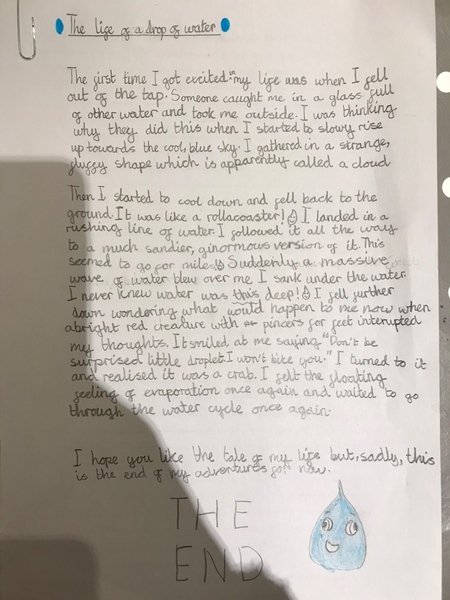 The life of a drop of water
The first time I got excited in my life was when I fell
out of the tap. Someone caught me in a glass full
of other water and took me outside. I was thinking
why they did this when I started to slowy rise
up towards the cool, blue sky. I gathered in a strange,
fluffy shape which is apparently called a cloud
Then I started to cool down and fell back to the
ground. It was like a rollacoaster! I landed in a
rushing line of water. I followed it all the way
to a much sandier, ginormous version of it. This
seemed to go for miles. Suddenly a massive
wave of water blew over me. I sank under the water.
I never knew water was this deep! I fell further
down wondering what would happen to me now when
a bright red creature with pincers for feet interupted
my thoughts. It smiled at me saying "Don't be
surprised little droplet. I won't bite you." I turned to it
and realised it was a crab. I felt the floating
feeling of evaporation once again and waited to go
through the water cycle once again.
I hope you like the tale of my life but, sadly, this
is the end of my adventures for now.
THE
END